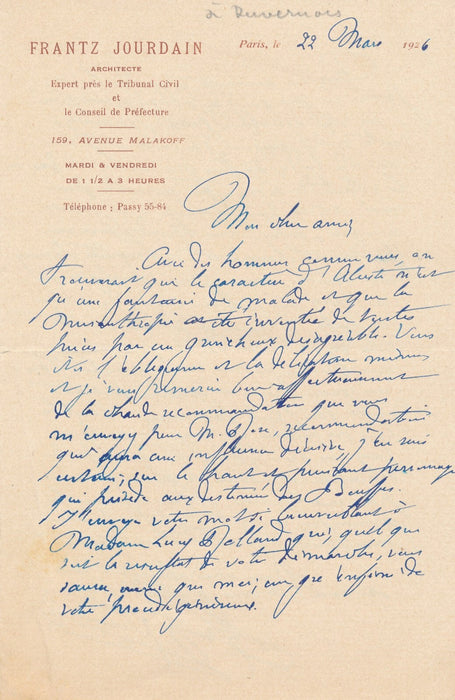 à Duvernois
FRANTZ JOURDAIN
ARCHITECTE
Expert près le Tribunal Civil
et
le Conseil de Préfecture
159, AVENUE MALAKOFF
MARDI & VENDREDI
DE 1 1/2 A 3 HEURES
Téléphone : Passy 55-84
Paris, le 22 Mars 1926
Mon cher ami,
Avec des hommes comme vous, on
trouverait que le caractère d'Alceste n'est
qu'une fantaisie de malade et que la
misanthropie a été inventée de toutes
pièces par un quincheux désagréable. Vous
êtes l'obligeance et la délicatesse mêmes
et je vous remercie bien affectueusement
de la chaude recommandation que vous
m'envoyez pour M. recommandation
qui aura une influence décisive, j'en suis
certain, sur le haut et puissant personnage
qui préside aux destinées des Bouffes.
J'envoye votre mot si bienveillant à
Madame Lucy qui, quel que
soit le résultat de votre démarche, vous
saura, ainsi que moi, un gré infini de
votre geste généreux.